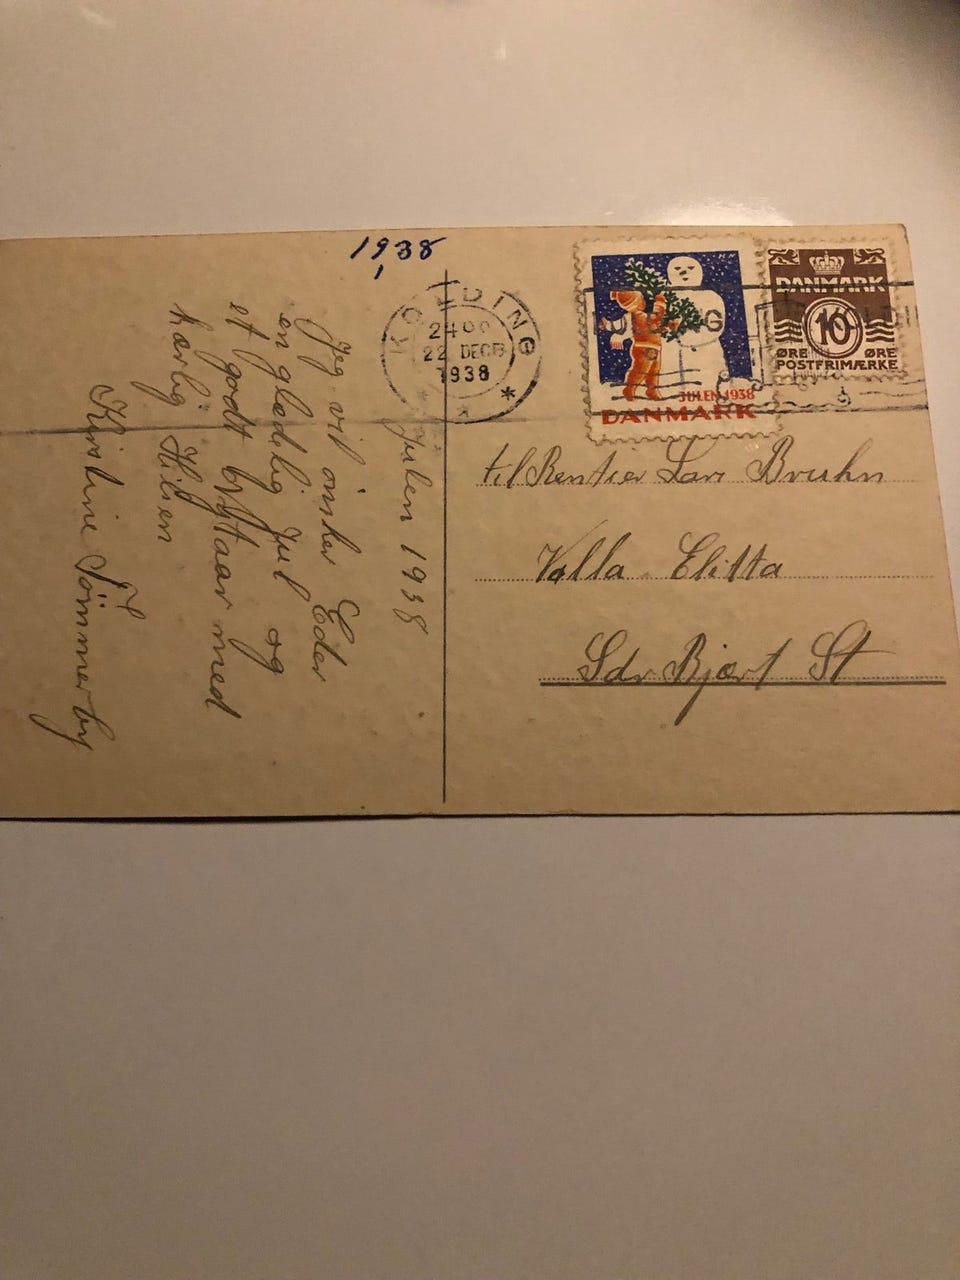 1938
KOLDING
24 00
22 DECB
1938
JULEN 1938
DANMARK
DANMARK
10
ØRE ØRE
POSTFRIMÆRKE
Julen 1938
Jeg vil önsker Eder
en glædelig Jul og
et godt Nytaar med
kærlig Hilsen
Kirstine Sömmerby
til Rentier Lars Bruhn
Villa Elitta
Sdr Bjært St